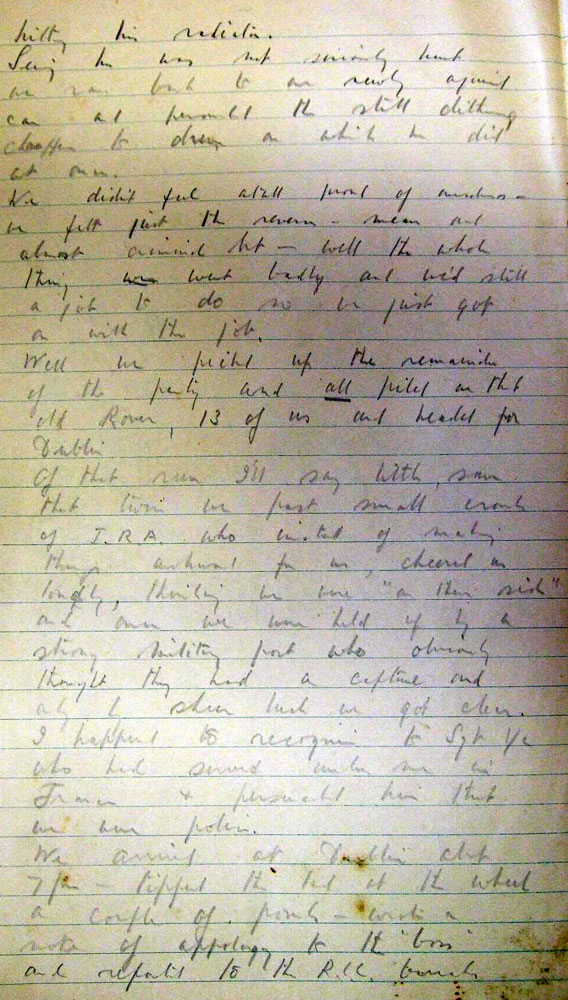 hitting his radiator.
Seeing he was not seriously hurt
we ran back to our newly acquired
car and persuaded the still dithering
chauffeur to drive on which he did
at once.
We didn't feel atall proud of ourselves –
we felt just the reverse – mean and
almost criminal but – well the whole
thing went badly and we'd still
a job to do so we just got
on with the job.
Well we picked up the remainder
of the party and all piled on that
old Rover, 13 of us and headed for
Dublin
Of that run I'll say little, save
that twice we past small crowds
of I.R.A. who instead of making
things awkward for us, cheered us
loudly, thinking we were "on their side"
and once we were held up by a
strong military post who obviously
thought they had a capture and
only by sheer luck we got clear.
I happened to recognise the Sgt i/c
who had served under me in
France & persuaded him that
we were police.
We arrived at Dublin abt
7 pm – tipped the lad at the wheel
a couple of pounds – wrote a
note of appology to the "boss"
and reported to the R.I.C. barracks